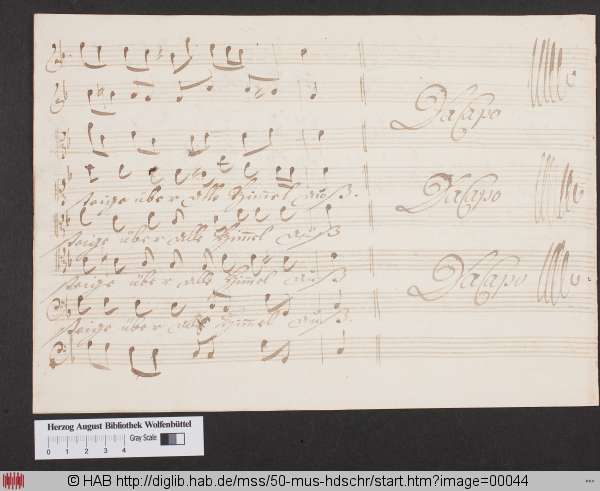 Da Capo
steige über alle Himmel auß.
Da Capo
steige über alle Himmel auß
steige über alle Himmel auß
Da Capo
steige über alle Himmel auß.
Herzog August Bibliothek Wolfenbüttel
Gray Scale
0 1 2 3 4
© HAB http://diglib.hab.de/mss/50-mus-hdschr/start.htm?image=00044